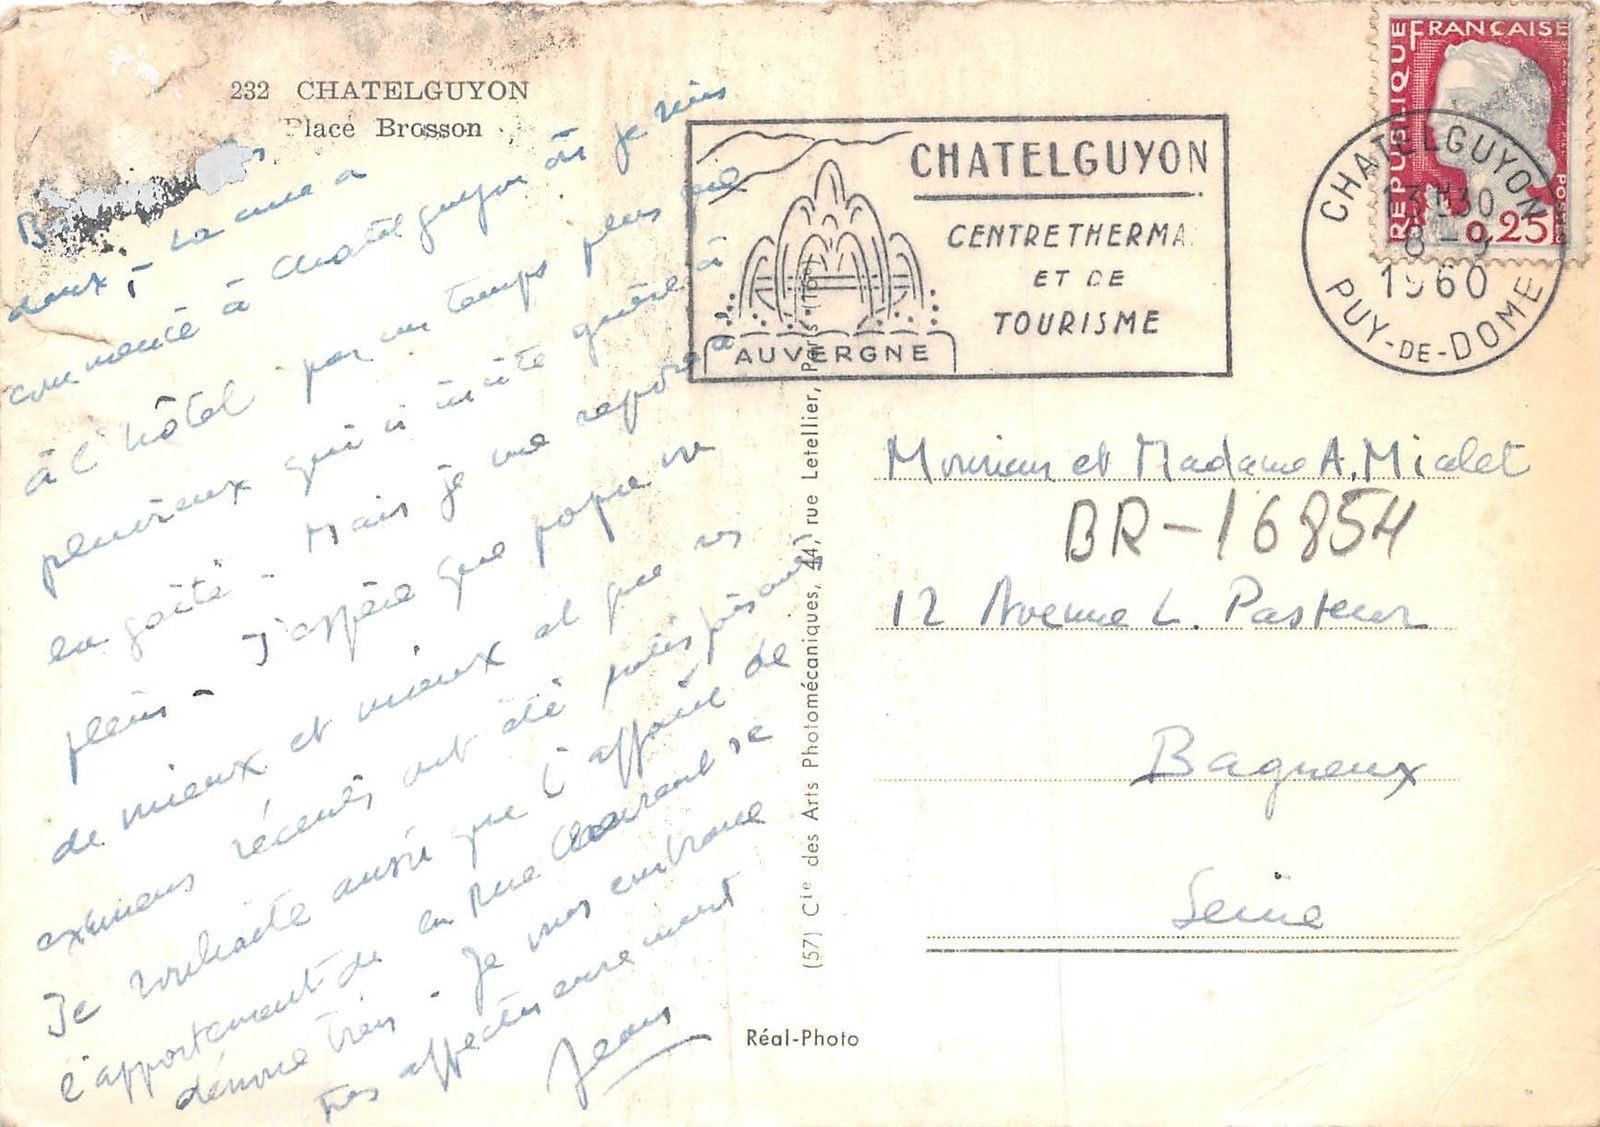 232 CHATELGUYON
Place Brosson
doux, - La cure a
commencé à Chatelguyon où je suis
à l'hôtel par un temps plus que
pluvieux qui n'incite guère à
la gaîté - Mais je me repose à
plein - J'espère que papa va
de mieux et mieux et que vos
examens récents ont été
Je souhaite aussi que l'affaire de
l'appartement de la rue Laurent se
dénoue bien. Je vous embrasse
très affectueusement
Jean
CHATELGUYON
CENTRE THERMA
ET DE
TOURISME
AUVERGNE
RÉPUBLIQUE FRANÇAISE
POSTES
0,25F
CHATELGUYON
13H30
8-9
1960
PUY-DE-DOME
Monsieur et Madame A. Mialet
BR-16854
12 Avenue L. Pasteur
Bagneux
Seine
(57) Cie des Arts Photomécaniques, 44, rue Letellier, Paris (15e)
Réal-Photo